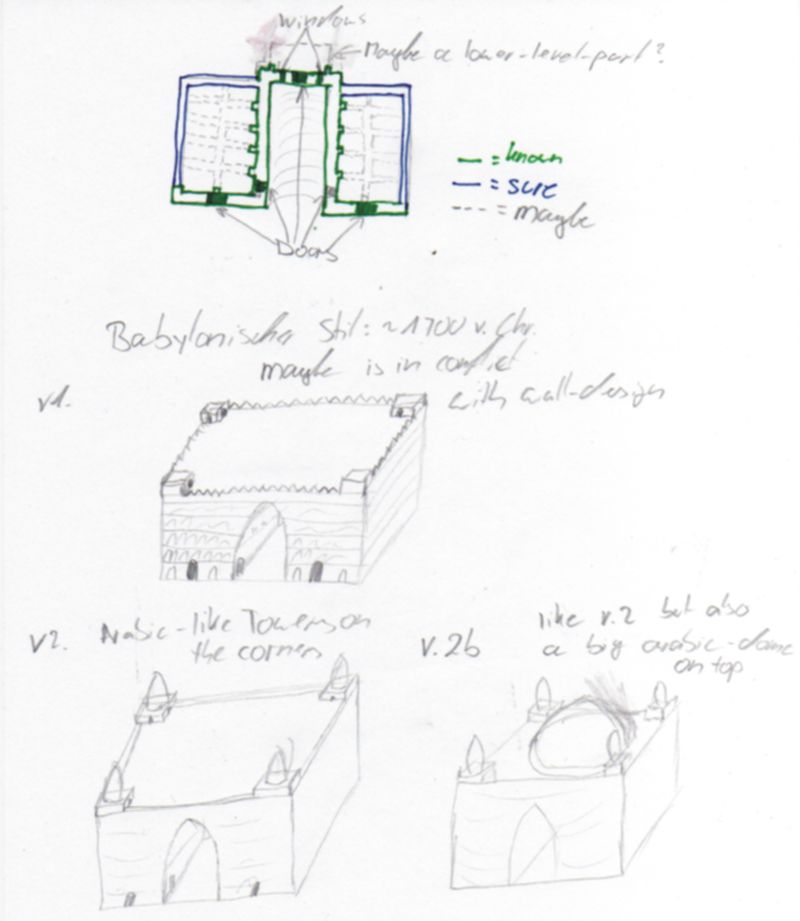 windows
Maybe a lower-level-part?
= known
= sure
= maybe
Doors
Babylonischer Stil: ~1700 v. Chr.
maybe is in conflict
with wall-design
v1.
v2. Arabic-like Towers on
the corners
v.2b like v.2 but also
a big arabic-dome
on top